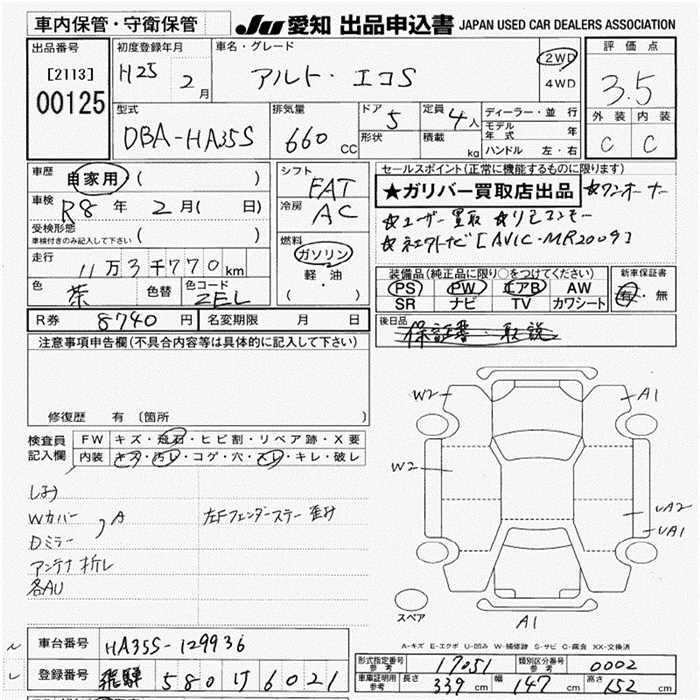 車内保管・守衛保管 JU 愛知 出品申込書 JAPAN USED CAR DEALERS ASSOCIATION
出品番号 初度登録年月 車名・グレード 評価点
[2113] 00125 H25 2月 アルト・エコS 2WD 4WD 3.5
型式 排気量 ドア 5 定員 4人 ディーラー・並行 外装 内装
DBA-HA35S 660cc 形状 積載 kg モデル年式 年 C C
ハンドル 左・右
車歴 自家用 ( ) シフト FAT セールスポイント(正常に機能するものに限ります)
車検 R8年2月( 日) 冷房 AC ★ガリバー買取店出品 ☆ワンオーナー
受検形態 ( ) ☆ユーザー買取 ☆リモコンキー
車検付きのみ記入して下さい 燃料 [AVIC-MR2009]
走行 11万3千770km ガソリン 装備品(純正品に限り○をつけてください) 新車保証書
軽・油 PS PW エアB AW 有・無
色 茶 色替 色コード ZEL ( ・ ) SR ナビ TV カワシート
R券 8740円 名変期限 月 日 後日品 保証書・取説
注意事項申告欄(不具合内容等は具体的に記入して下さい)
修復歴 有 〔箇所 〕
検査員 FW キズ・飛石・ヒビ割・リペア跡・X要
記入欄 内装 キズ・汚レ・コゲ・穴・スレ・キレ・破レ
W2 A1
W2
UA2
UA1
Wカバー 、A 左Fフェンダーステー歪み
Dミラー
アンテナ折レ
各AU
スペア A1
A-キズ E-エクボ U-凹み W-補修跡 S-サビ C-腐食 XX-交換済
車台番号 HA35S-129936
登録番号 飛騨 580 け 6021
形式指定番号 参考 17051 類別区分番号 参考 0002
車庫証明用 参考 長さ 339cm 幅 147cm 高さ 152cm